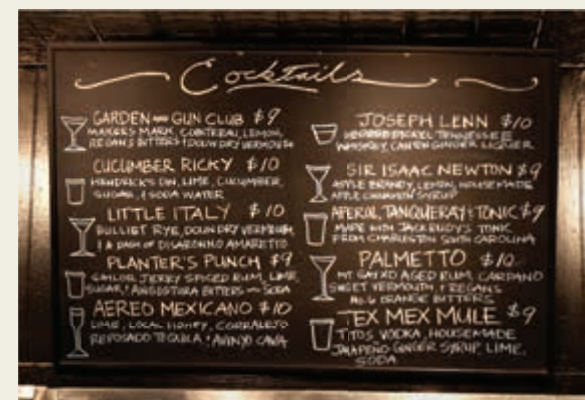 Cocktails
GARDEN AND GUN CLUB $9
MAKERS MARK, COINTREAU, LEMON,
REGANS BITTERS + DOLIN DRY VERMOUTH
CUCUMBER RICKY $10
HENDRICK'S GIN, LIME, CUCUMBER,
SUGAR, + SODA WATER
LITTLE ITALY $10
BULLIET RYE, DOLIN DRY VERMOUTH,
+ A DASH OF DISARONNO AMARETTO
PLANTER'S PUNCH $9
SAILOR JERRY SPICED RUM, LIME,
SUGAR, + ANGOSTURA BITTERS SODA
AEREO MEXICANO $10
LIME, LOCAL HONEY, CORRALEJO
REPOSADO TEQUILA, + AVINYO CAVA
JOSEPH LENN $10
GEORGE DICKEL TENNESSEE
WHISKEY, CANTON GINGER LIQUEUR
SIR ISAAC NEWTON $9
APPLE BRANDY, LEMON, HOUSEMADE
APPLE CINNAMON SYRUP
APEROL, TANQUERAY + TONIC $9
MADE WITH JACK RUDY'S TONIC
FROM CHARLESTON SOUTH CAROLINA
PALMETTO $10
MT GAY XO AGED RUM, CARPANO
SWEET VERMOUTH, + REGANS
NO. 6 ORANGE BITTERS
TEX MEX MULE $9
TITOS VODKA, HOUSEMADE
JALAPEÑO GINGER SYRUP, LIME,
SODA